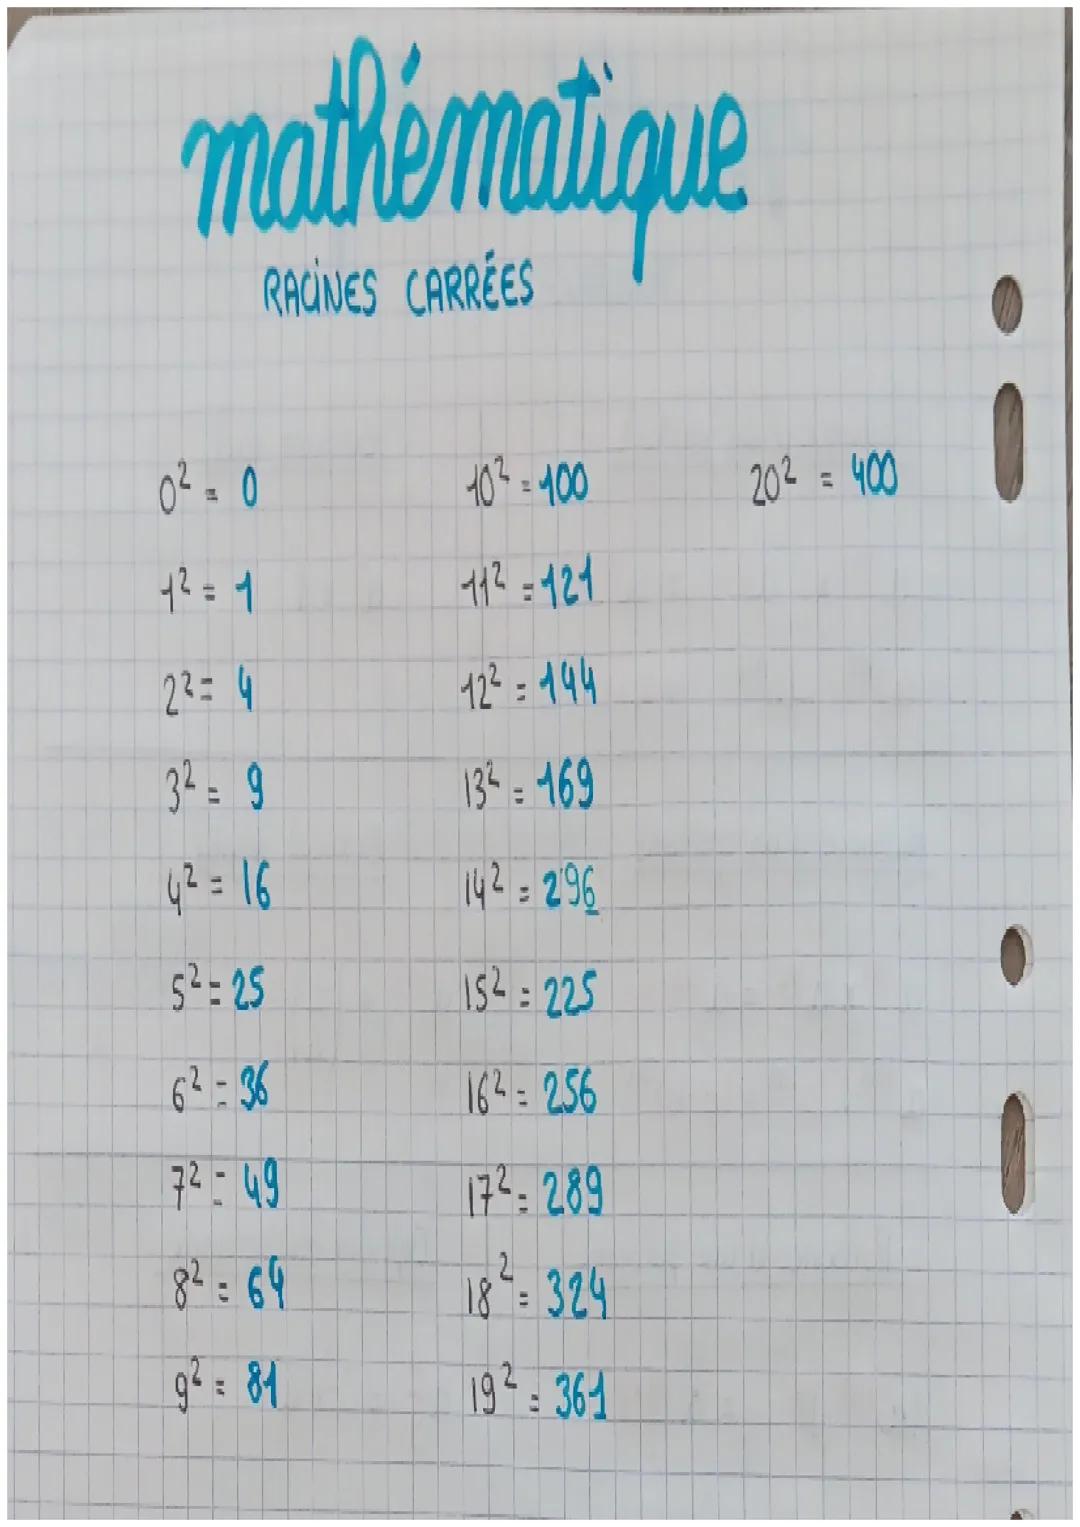 mathématique
RACINES CARRÉES
0² = 0
1² = 1
2² = 4
3² = 9
4² = 16
5² = 25
6² = 36
7² = 49
8² = 64
9² = 81
10² = 100
11² = 121
12² = 144
13² = 169
14² = 296
15² = 225
16² = 256
17² = 289
18² = 324
19² = 361
20² = 400